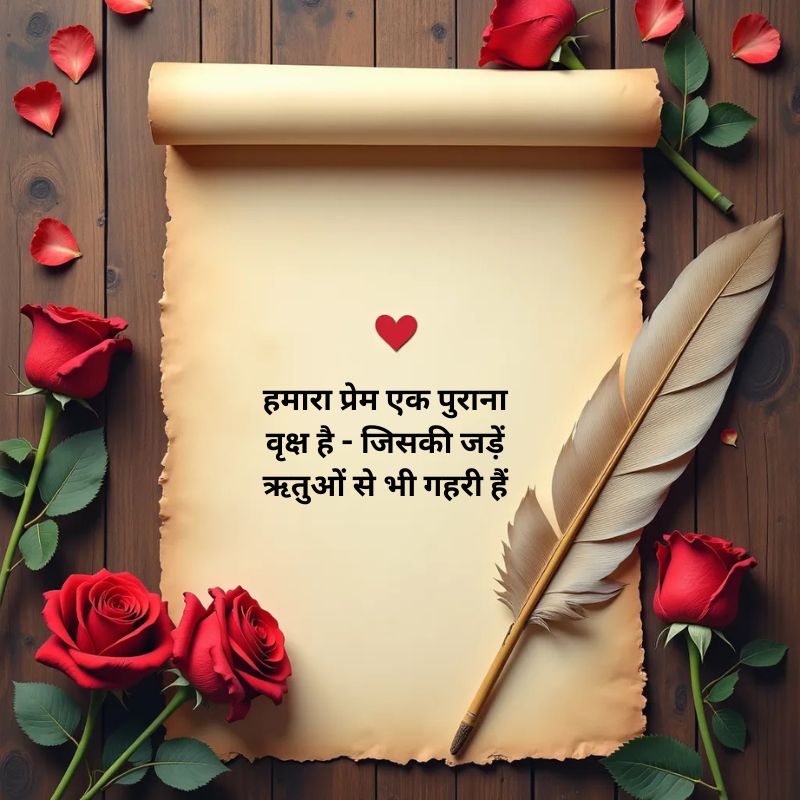 हमारा प्रेम एक पुराना
वृक्ष है - जिसकी जड़ें
ऋतुओं से भी गहरी हैं